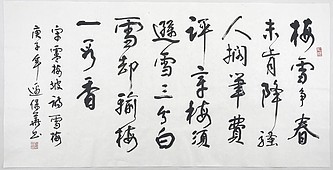 梅雪争春
未肯降骚
人搁笔费
评章梅须
逊雪三分白
雪却输梅
一段香
宋 卢梅坡诗 雪梅
庚子年